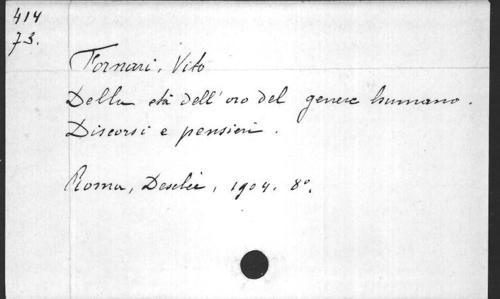 414
73.
Fornari, Vito
Della età dell'oro del genere humano.
Discorsi e pensieri.
Roma, Desclée, 1904. 8°.